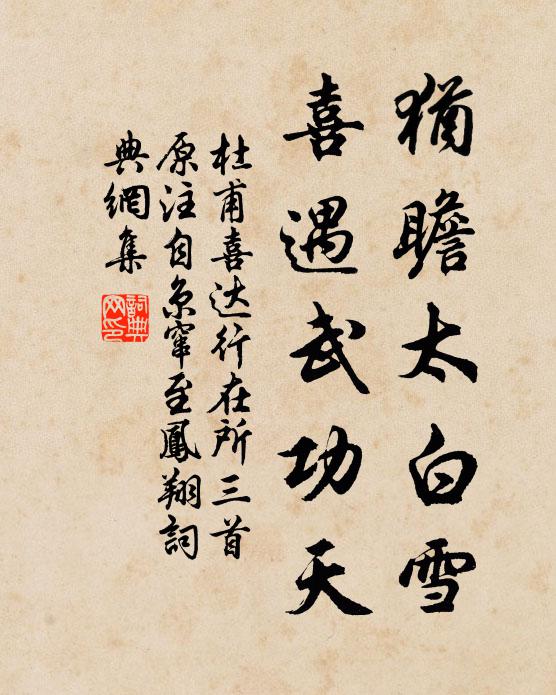 猶瞻太白雪
喜遇武功天
杜甫喜达行在所三首
原注自京窜至鳳翔詞
典網集
詞典網印